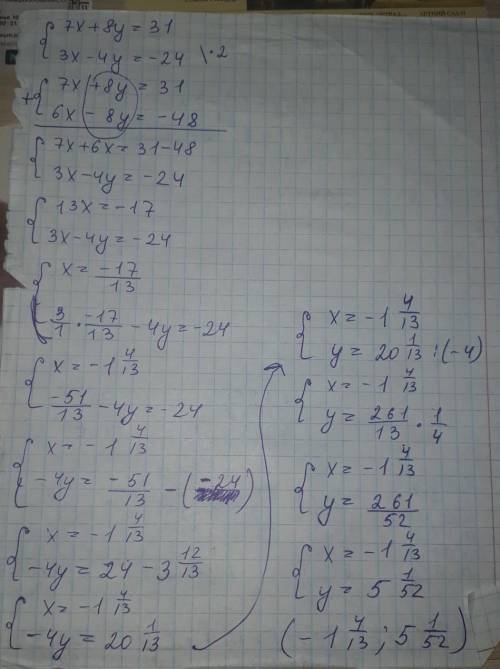 { 7x + 8y = 31
3x - 4y = -24 \·2
+ { 7x + 8y = 31
6x - 8y = -48
{ 7x + 6x = 31 - 48
3x - 4y = -24
{ 13x = -17
3x - 4y = -24
{ x = -17/13
3/1 · -17/13 - 4y = -24
{ x = -1 4/13
-51/13 - 4y = -24
{ x = -1 4/13
-4y = -51/13 - (-24)
{ x = -1 4/13
-4y = 24 - 3 12/13
{ x = -1 4/13
-4y = 20 1/13
{ x = -1 4/13
y = 20 1/13 : (-4)
{ x = -1 4/13
y = 261/13 · 1/4
{ x = -1 4/13
y = 261/52
{ x = -1 4/13
y = 5 1/52
(-1 4/13 ; 5 1/52)